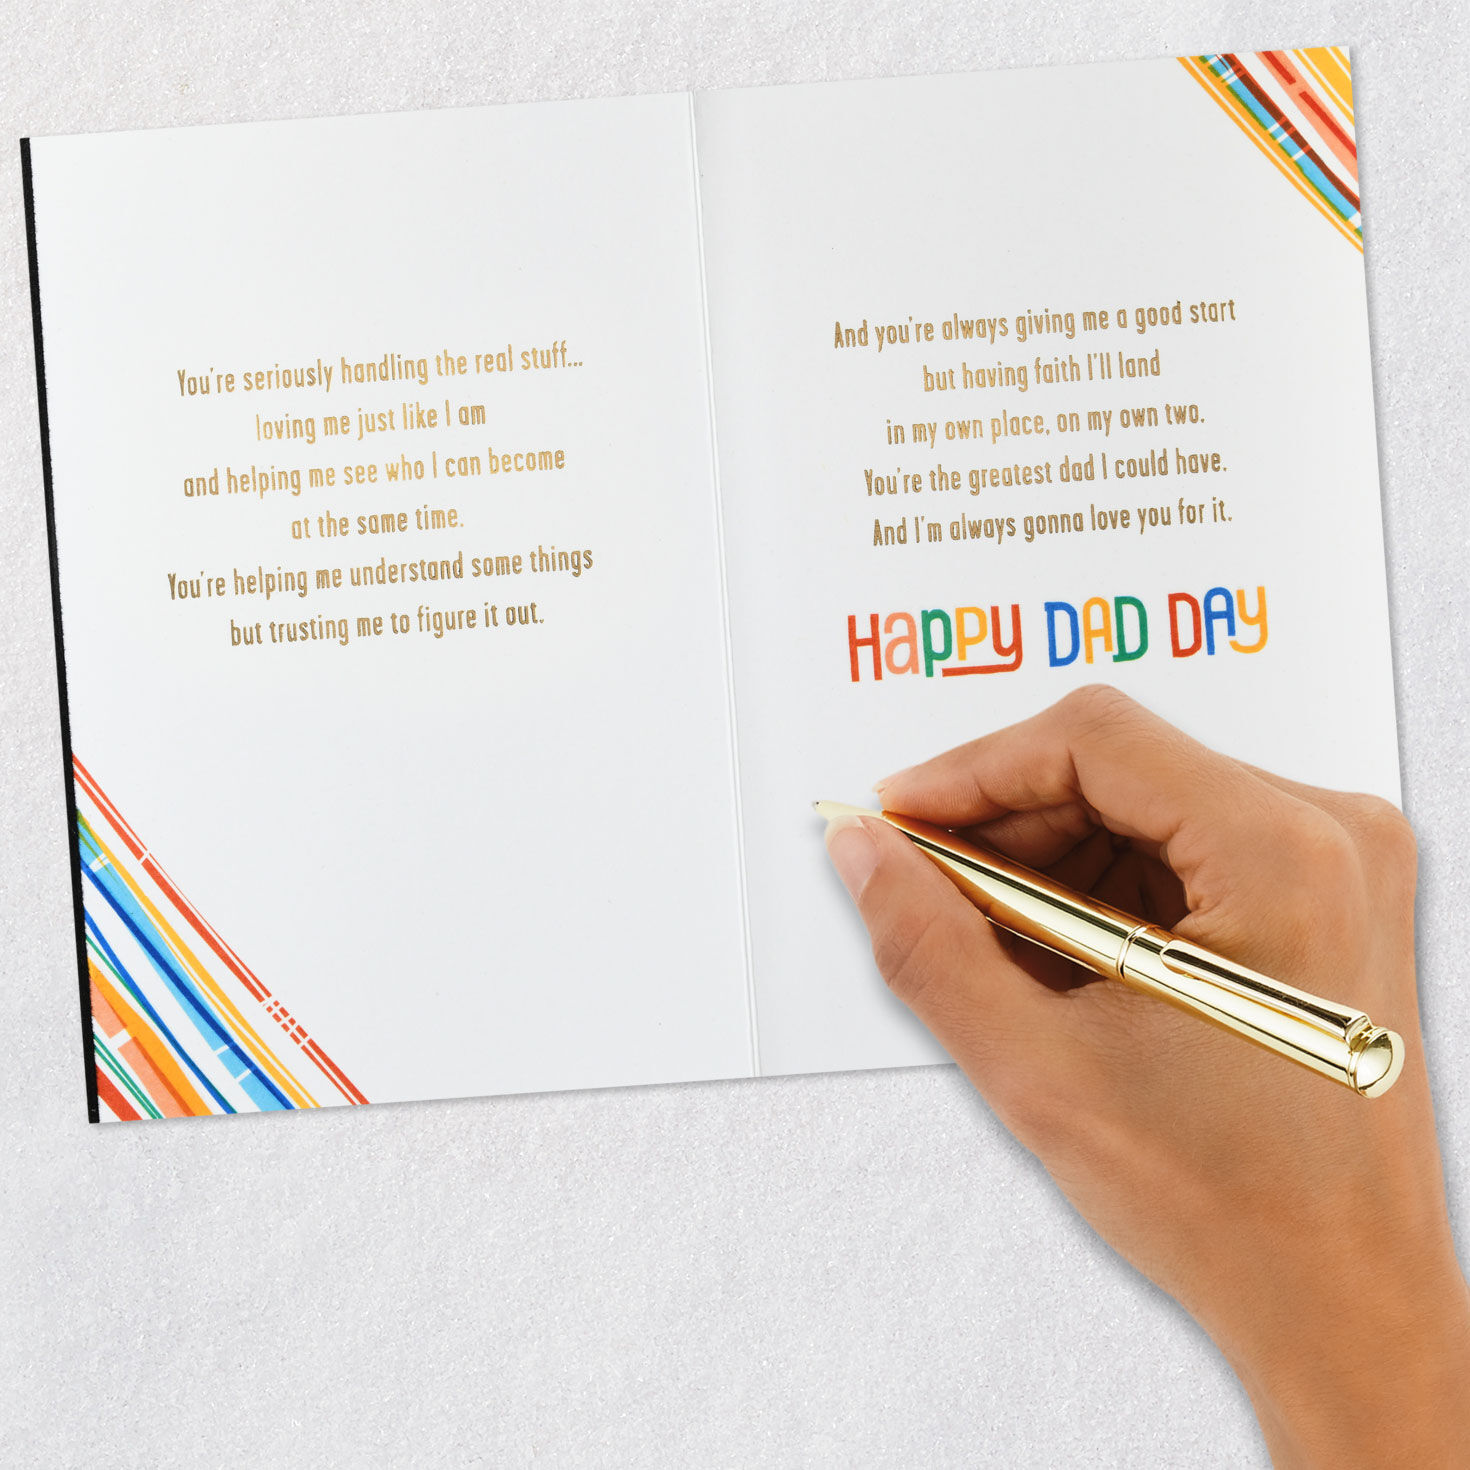 You're seriously handling the real stuff...
loving me just like I am
and helping me see who I can become
at the same time.
You're helping me understand some things
but trusting me to figure it out.
And you're always giving me a good start
but having faith I'll land
in my own place, on my own two.
You're the greatest dad I could have.
And I'm always gonna love you for it.
Happy DAD DAy